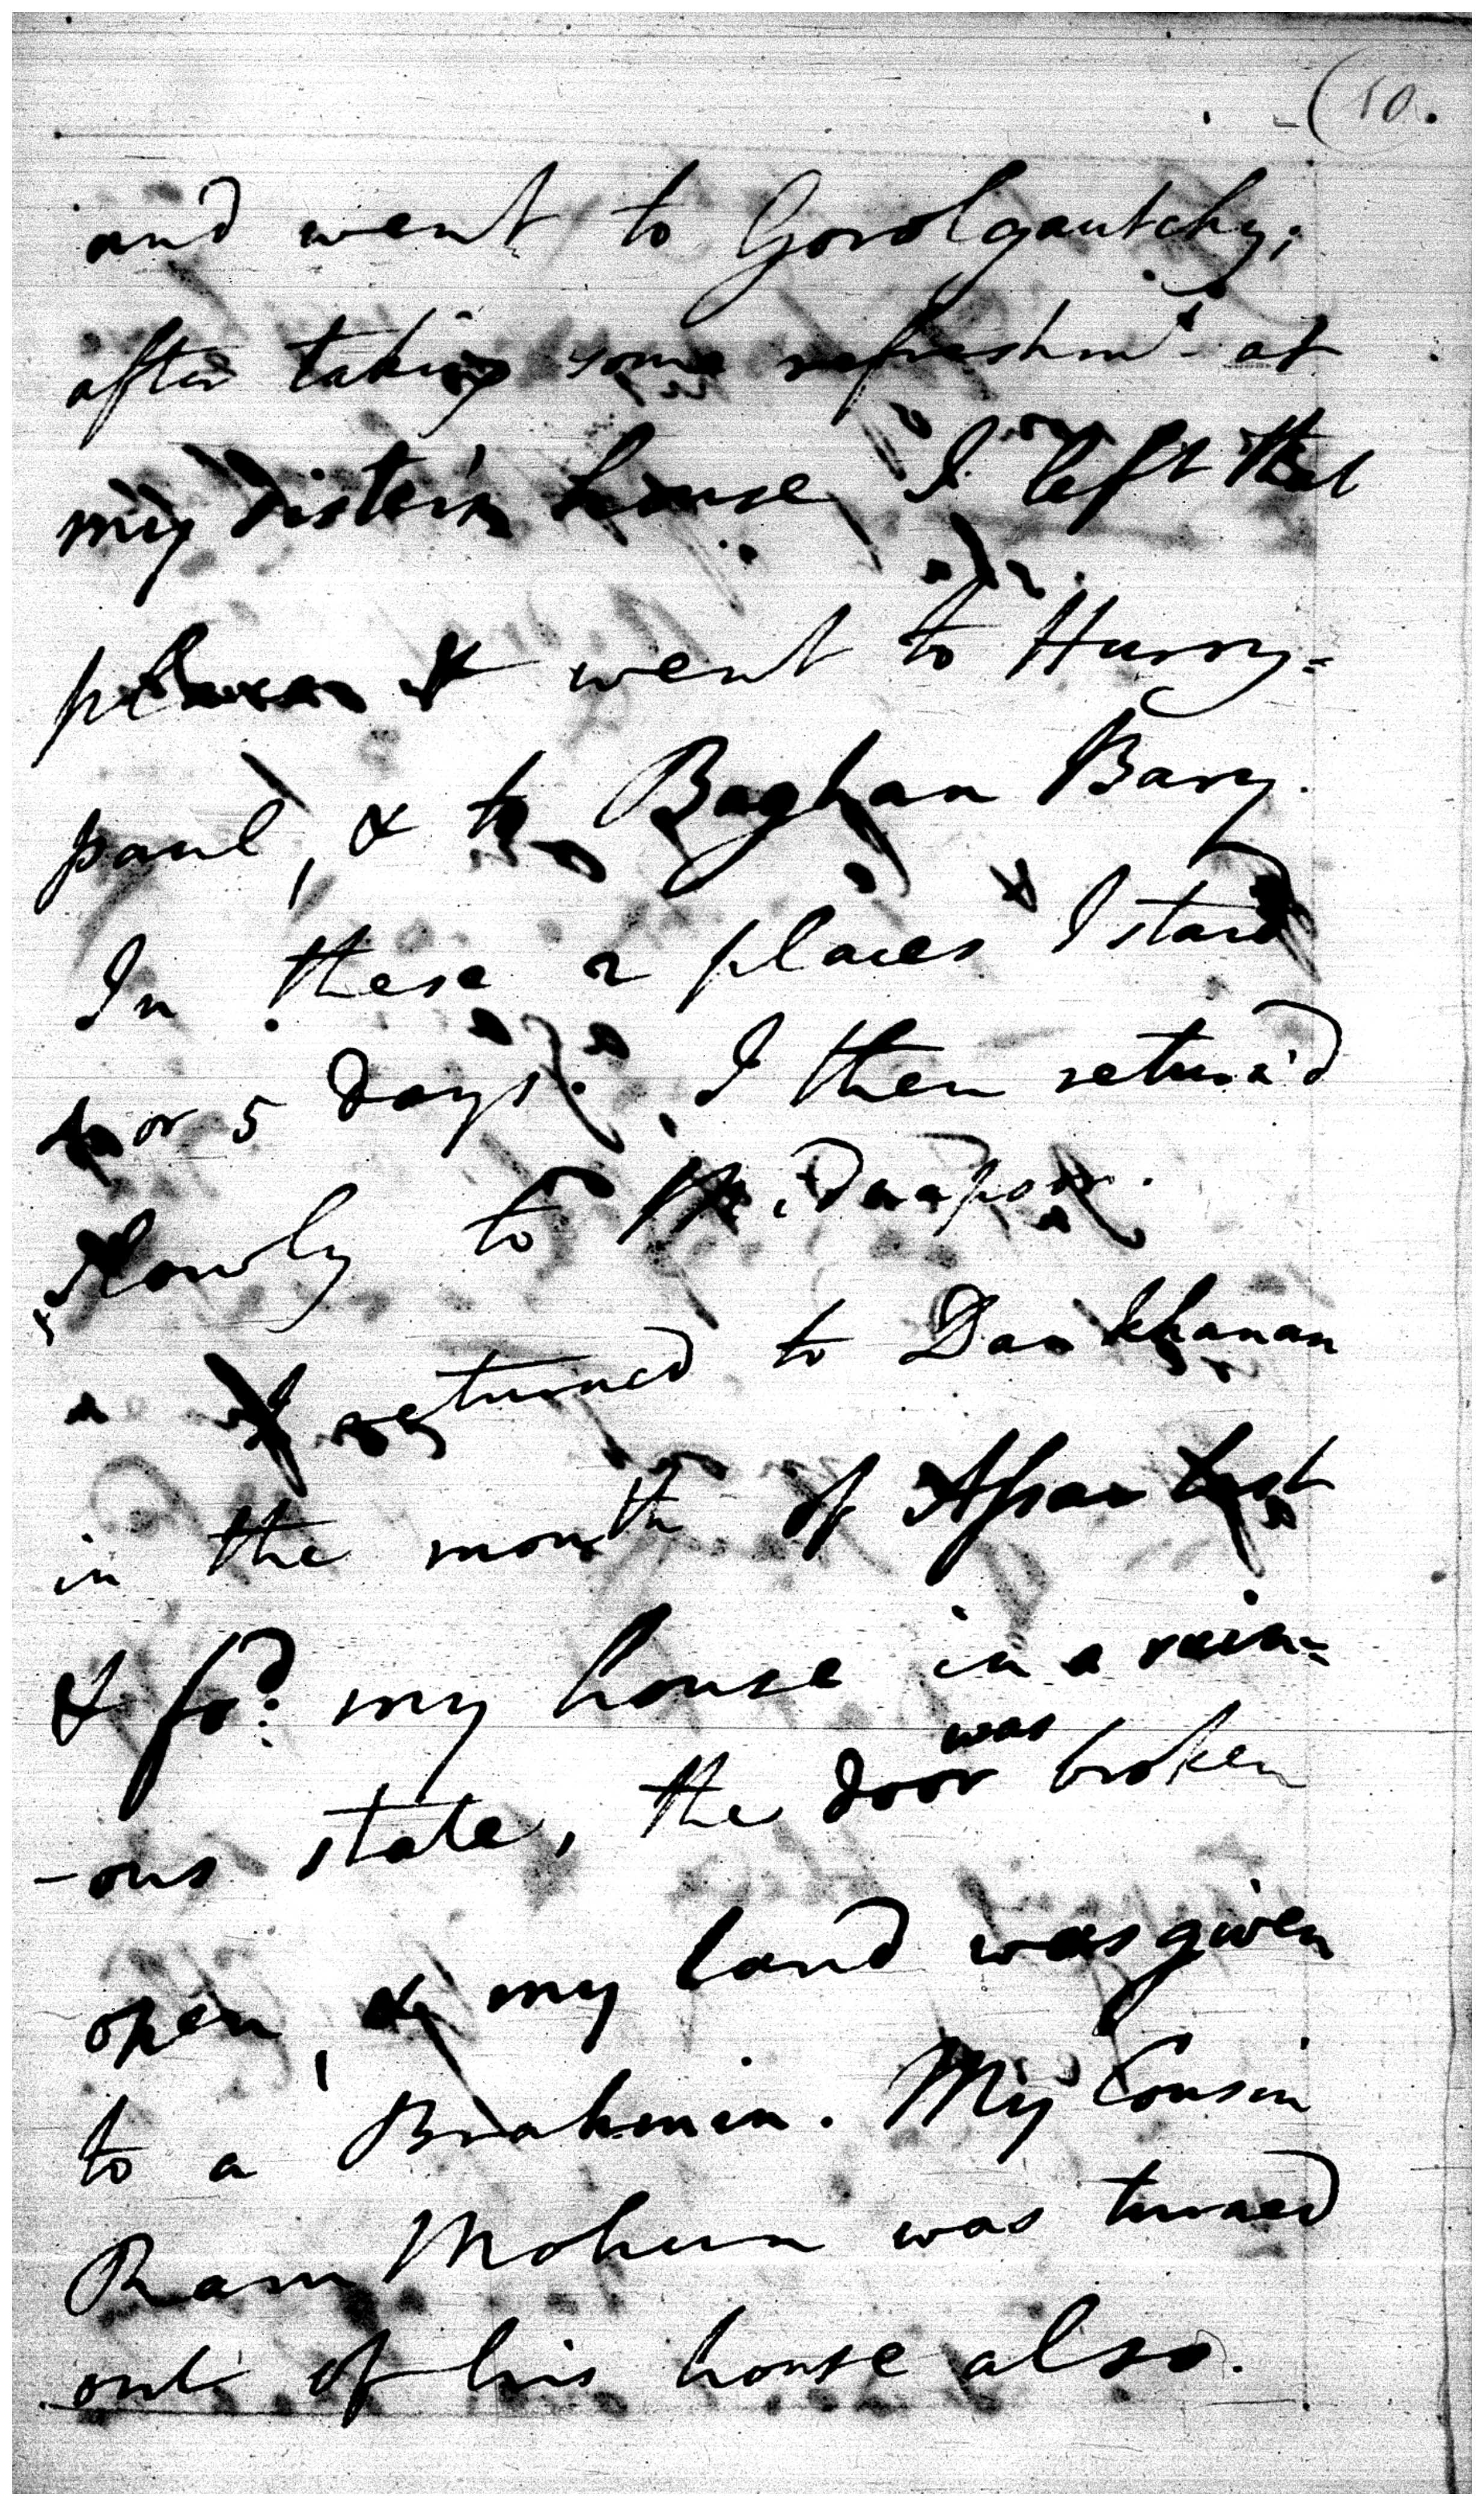 (10.
and went to Gorolgautchy;
after taking some refreshmt at
my sister's house I left that
place & went to Hurry=
paul, & to Baghan Bary.
In these 2 places I staid
4 or 5 days. I then return'd
slowly to Midnapore.
I returned to Dankhanan
in the month of Assar last
& fod: my house in a ruin=
-ous state, the door was broken
open, & my land was given
to a Brahmin. My Cousin
Ram Mohun was turned
out of his house also.